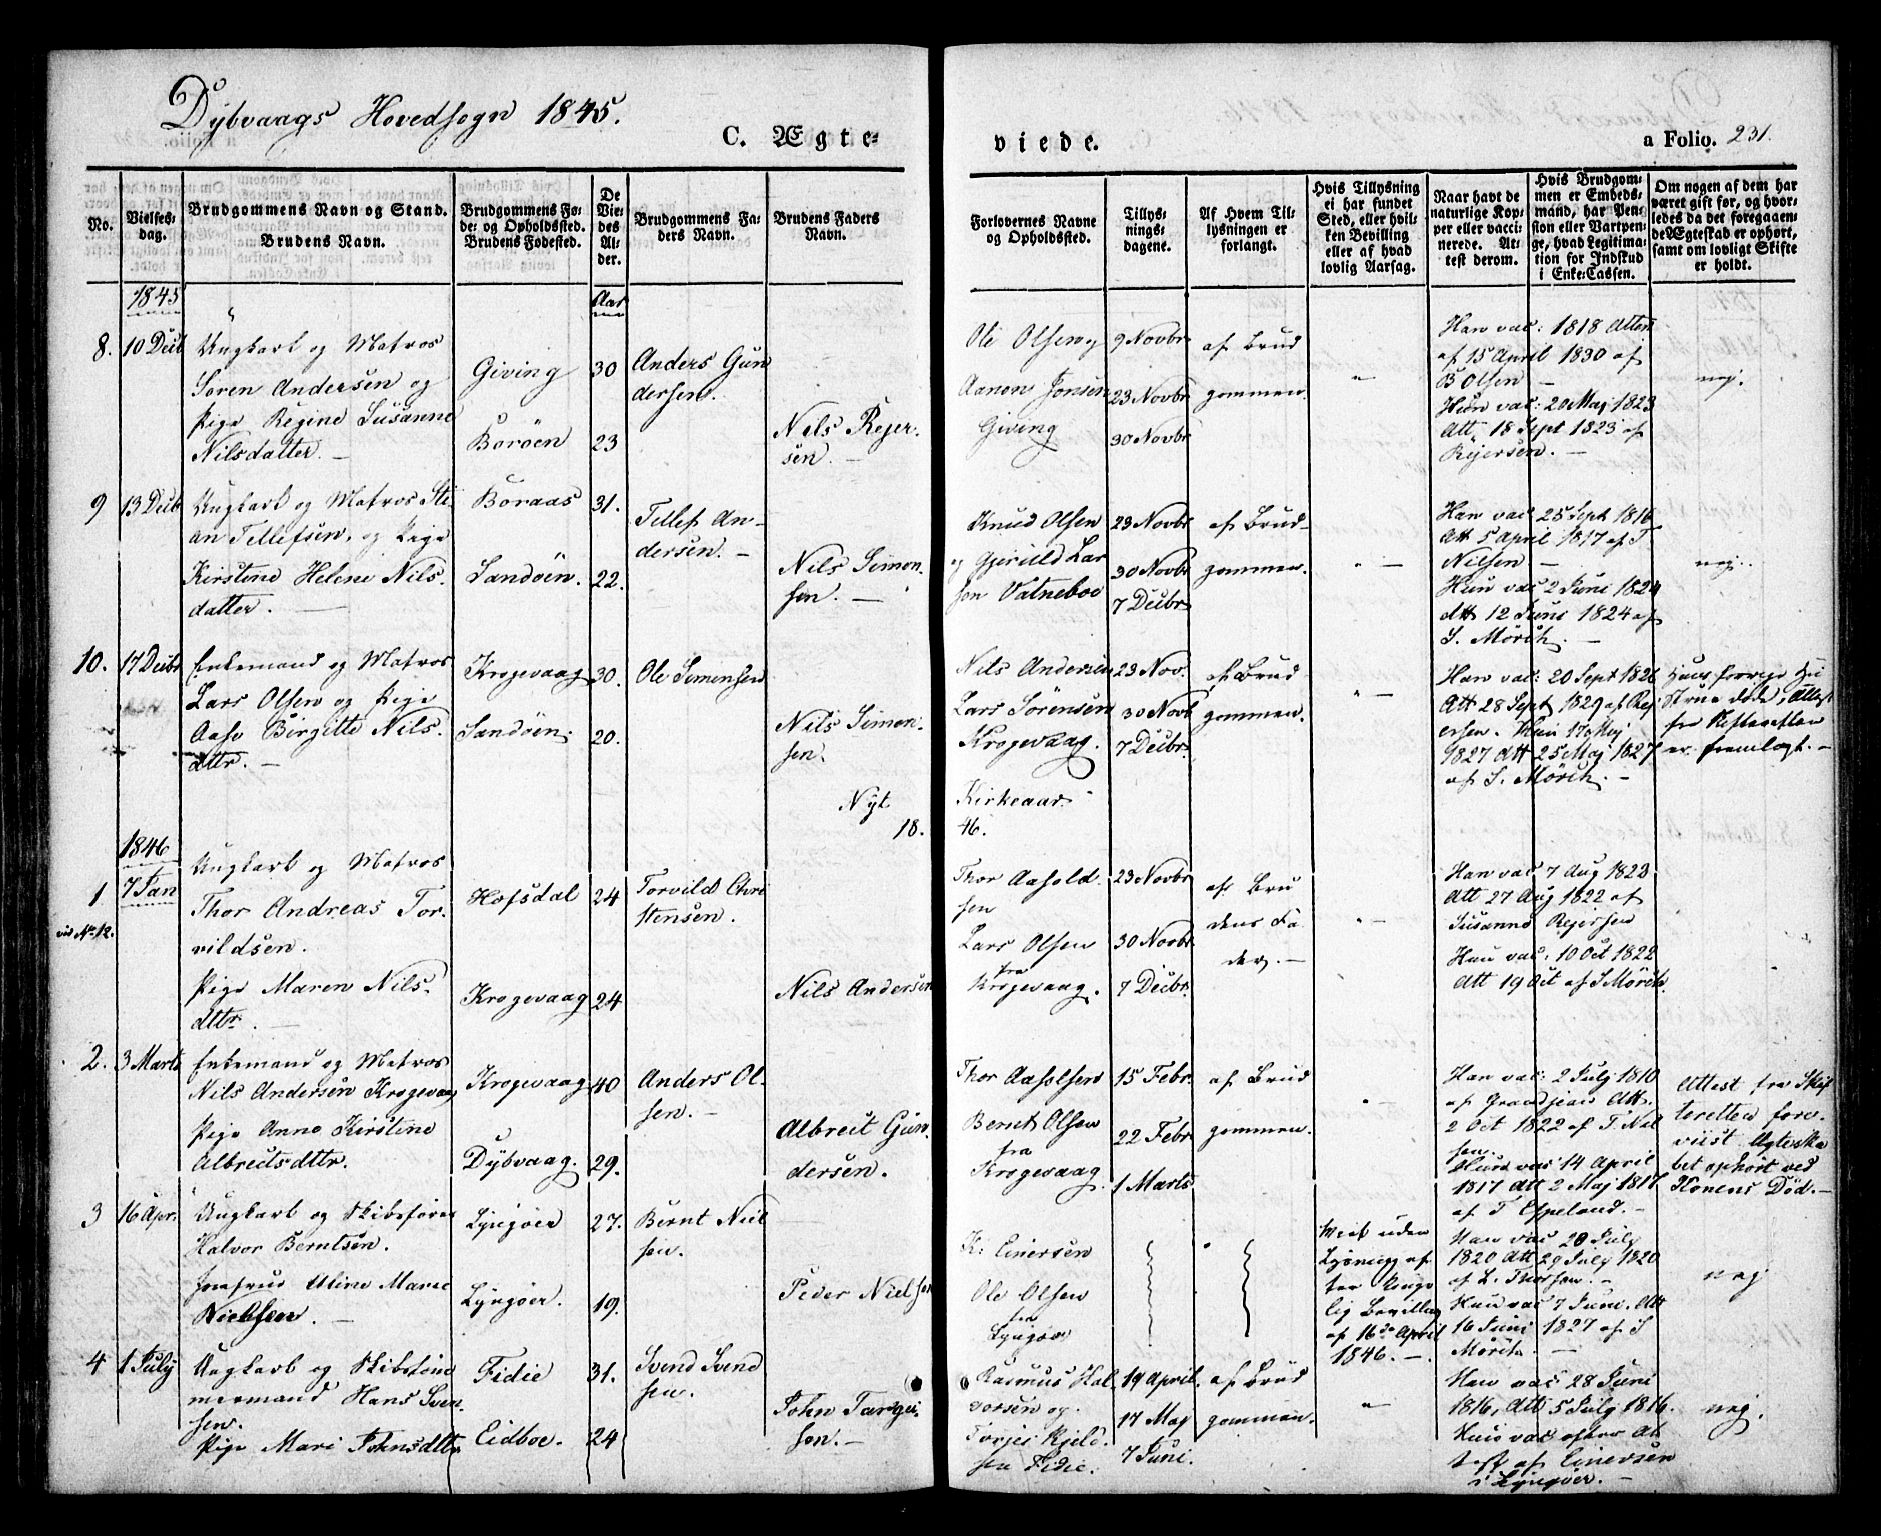 Dybvaags Hovedsogn 1845.
C. Ægte-
viede.
a Folio. 231.
No.
Vielses-
dag.
Brudgommens Navn og Stand.
Brudens Navn.
Brudgommens Fø-
de- og Opholdssted.
Brudens Fødested.
De
Vie-
des
Al-
der.
Brudgommens Fa-
ders Navn.
Brudens Faders
Navn.
Forlovernes Navne
og Opholdssted.
Tillys-
nings-
dagene.
Af Hvem Til-
lysningen er
forlangt.
Hvis Tillysning
ei har fundet
Sted, eller hvil-
ken Bevilling
eller af hvad
lovlig Aarsag.
Naar havt de
naturlige Kop-
per eller vacci-
nerede. At-
test derom.
Hvis Brudgom-
men er Embeds-
mand, har Pen-
sion eller Vartpen-
ge, hvad Legitima-
tion for Indskud
i Enke-Cassen.
Om nogen af dem har
været gift før, og hvor-
ledes da det foregaaen-
de Ægteskab er ophørt,
samt om lovligt Skifte
er holdt.
1845
Aar
8.
10 Decb
Ungkarl og Matros
Søren Andersen og
Pige Regine Susanne
Nilsdatter. —
Giving
Borøen
30
23
Anders Gun
dersen.
Nils Rejer-
sen. —
Ole Olsen og
Aanon Jonsen
Giving
9 Novbr
23 Novbr
30 Novbr
af Brud
gommen.
Han vac: 1818 Atten
af 15 April 1830 af
B Olsen —
Hun vac: 20 Maj 1823
Att 18 Sept 1823 af
Rejersen. —
nej.
9
13 Decb
Ungkarl og Matros Sti-
an Tellefsen, og Pige
Kirstine Helene Nils-
datter. —
Boraas
Sandøen.
31.
22.
Tellef An-
dersen. —
Nils Simon-
sen. —
Knud Olsen
og Gjeruld Lar
sen Vatneboe
23 Novbr
30 Novbr
7 Decbr
af Brud-
gommen.
Han vac 25 Sept 1816
Att 5 April 1817 af T
Nilsen —
Hun vac 2 Juni 1824
Att 12 Juni 1824 af
S. Mörch. —
nej.
10.
17 Decbr
Enkemand og Matros
Lars Olsen og Pige
Aase Birgitte Nils-
dttr. —
Krogevaag
Sandøen.
30.
20.
Ole Simensen
Nils Simon-
sen.
Nils Andersen
Lars Sörensen
Krogevaag.
23 Nov.
30 Novb
7 Decbr
af Brud
gommen.
Han vac: 20 Sept 1826
Att 28 Sept 1829 af Rej
ersen. Hun 17 Maj
1827 Att 25 Maj 1827
af S. Mörch. —
Hans forrige Hu
strue död, Attest
fra Skifteretten
er fremlagt. —
Nyt
Kirkeaar
18.
46.
1846
1
vid No 12.
7 Jan
Ungkarl og Matros
Thor Andreas Tor-
vildsen.
Pige Maren Nils-
dttr. —
Hofsdal
Krogevaag
24
24
Torvild Chri
stensen.
Nils Andersen
Thor Aasold-
sen
Lars Olsen
fra
Krogevaag.
23 Novbr
30 Novbr
7 Decbr.
af Bru
dens Fa
der. —
Han vac 7 Aug 1822
Att 27 Aug 1822 af
Susanne Rejersen
Hun vac: 10 Oct 1822
Att 19 Oct af S Mörch
2.
3 Marts
Enkemand og Matros
Nils Andersen Krogevaag
Pige Anne Kirstine
Albretsdttr.
Krogevaag
Dybvaag.
40
29.
Anders Ol-
sen. —
Albrect Gun-
dersen.
Thor Aasolsen
Bernt Olsen
fra
Krogevaag.
15 Febr.
22 Febr
1 Marts
af Brud
gommen.
Han vac: 2 July 1810
af Grandjean Att.
2 Oct 1822 af T. Nil
sen.
Hun vac 14 April
1817 Att 2 Maj 1817
af T Espeland. —
Attest fra Skif
teretten fore-
viist Ægteska
bet ophört ved
Konens Död. —
3
16 Apr.
Ungkarl og Skibsförer
Halvor Berntsen.
Jomfrue Aline Marie
Nielsen. —
Lyngöer
Lyngöer.
27.
19.
Bernt Niel
sen.
Peder Nielsen
K: Einersen
Ole Olsen
fra
Lyngör
Viet uden
Lysning ef
ter Konge
lig Bevilling
af 16de April
1846. —
Han vac 20 July
1820 Att 29 July 1820
af L. Thorsen. —
Hun vac 7 Juni. Att
16 Juni 1827 af S
Mörch. —
nej
4
1 July
Ungkarl og Skibstöm
mermand Hans Sven-
sen.
Pige Mari Johnsdttr
Fidie
Eidboe.
31.
24
Svend Svend
sen.
John Targie
sen. —
Rasmus Hal-
vorsen og
Torjer Kjeld-
sen Fidie.
19 April.
17 Maj
7 Juni.
af Brud
gommen.
Han vac 28 Juni
1816, Att 5 July 1816.
Hun vac efter At
test af Einersen
i Lyngöer. —
nej.